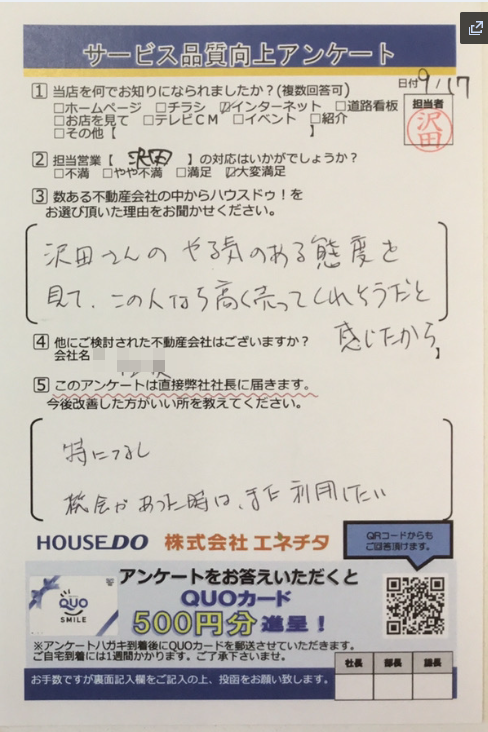 サービス品質向上アンケート
日付9/17
1 当店を何でお知りになられましたか?(複数回答可)
□ホームページ □チラシ ☑インターネット □道路看板
□お店を見て □テレビCM □イベント □紹介
□その他【 】
担当者
沢田
2 担当営業【 沢田 】の対応はいかがでしょうか?
□不満 □やや不満 □満足 ☑大変満足
3 数ある不動産会社の中からハウスドゥ!を
お選び頂いた理由をお聞かせください。
沢田さんの やる気のある態度を
見て、この人なら高く売ってくれそうだと
感じたから
4 他にご検討された不動産会社はございますか?
会社名
】
5 このアンケートは直接弊社社長に届きます。
今後改善した方がいい所を教えてください。
特になし
機会があった時は、また利用したい
HOUSEDO 株式会社 エネチタ
QRコードからも
ご回答頂けます。
QUO
SMILE
アンケートをお答えいただくと
QUOカード
500円分進呈!
※アンケートハガキ到着後にQUOカードを郵送させていただきます。
ご自宅到着には1週間かかります。ご了承下さいませ。
お手数ですが裏面記入欄をご記入の上、投函をお願い致します。
社長 部長 店長